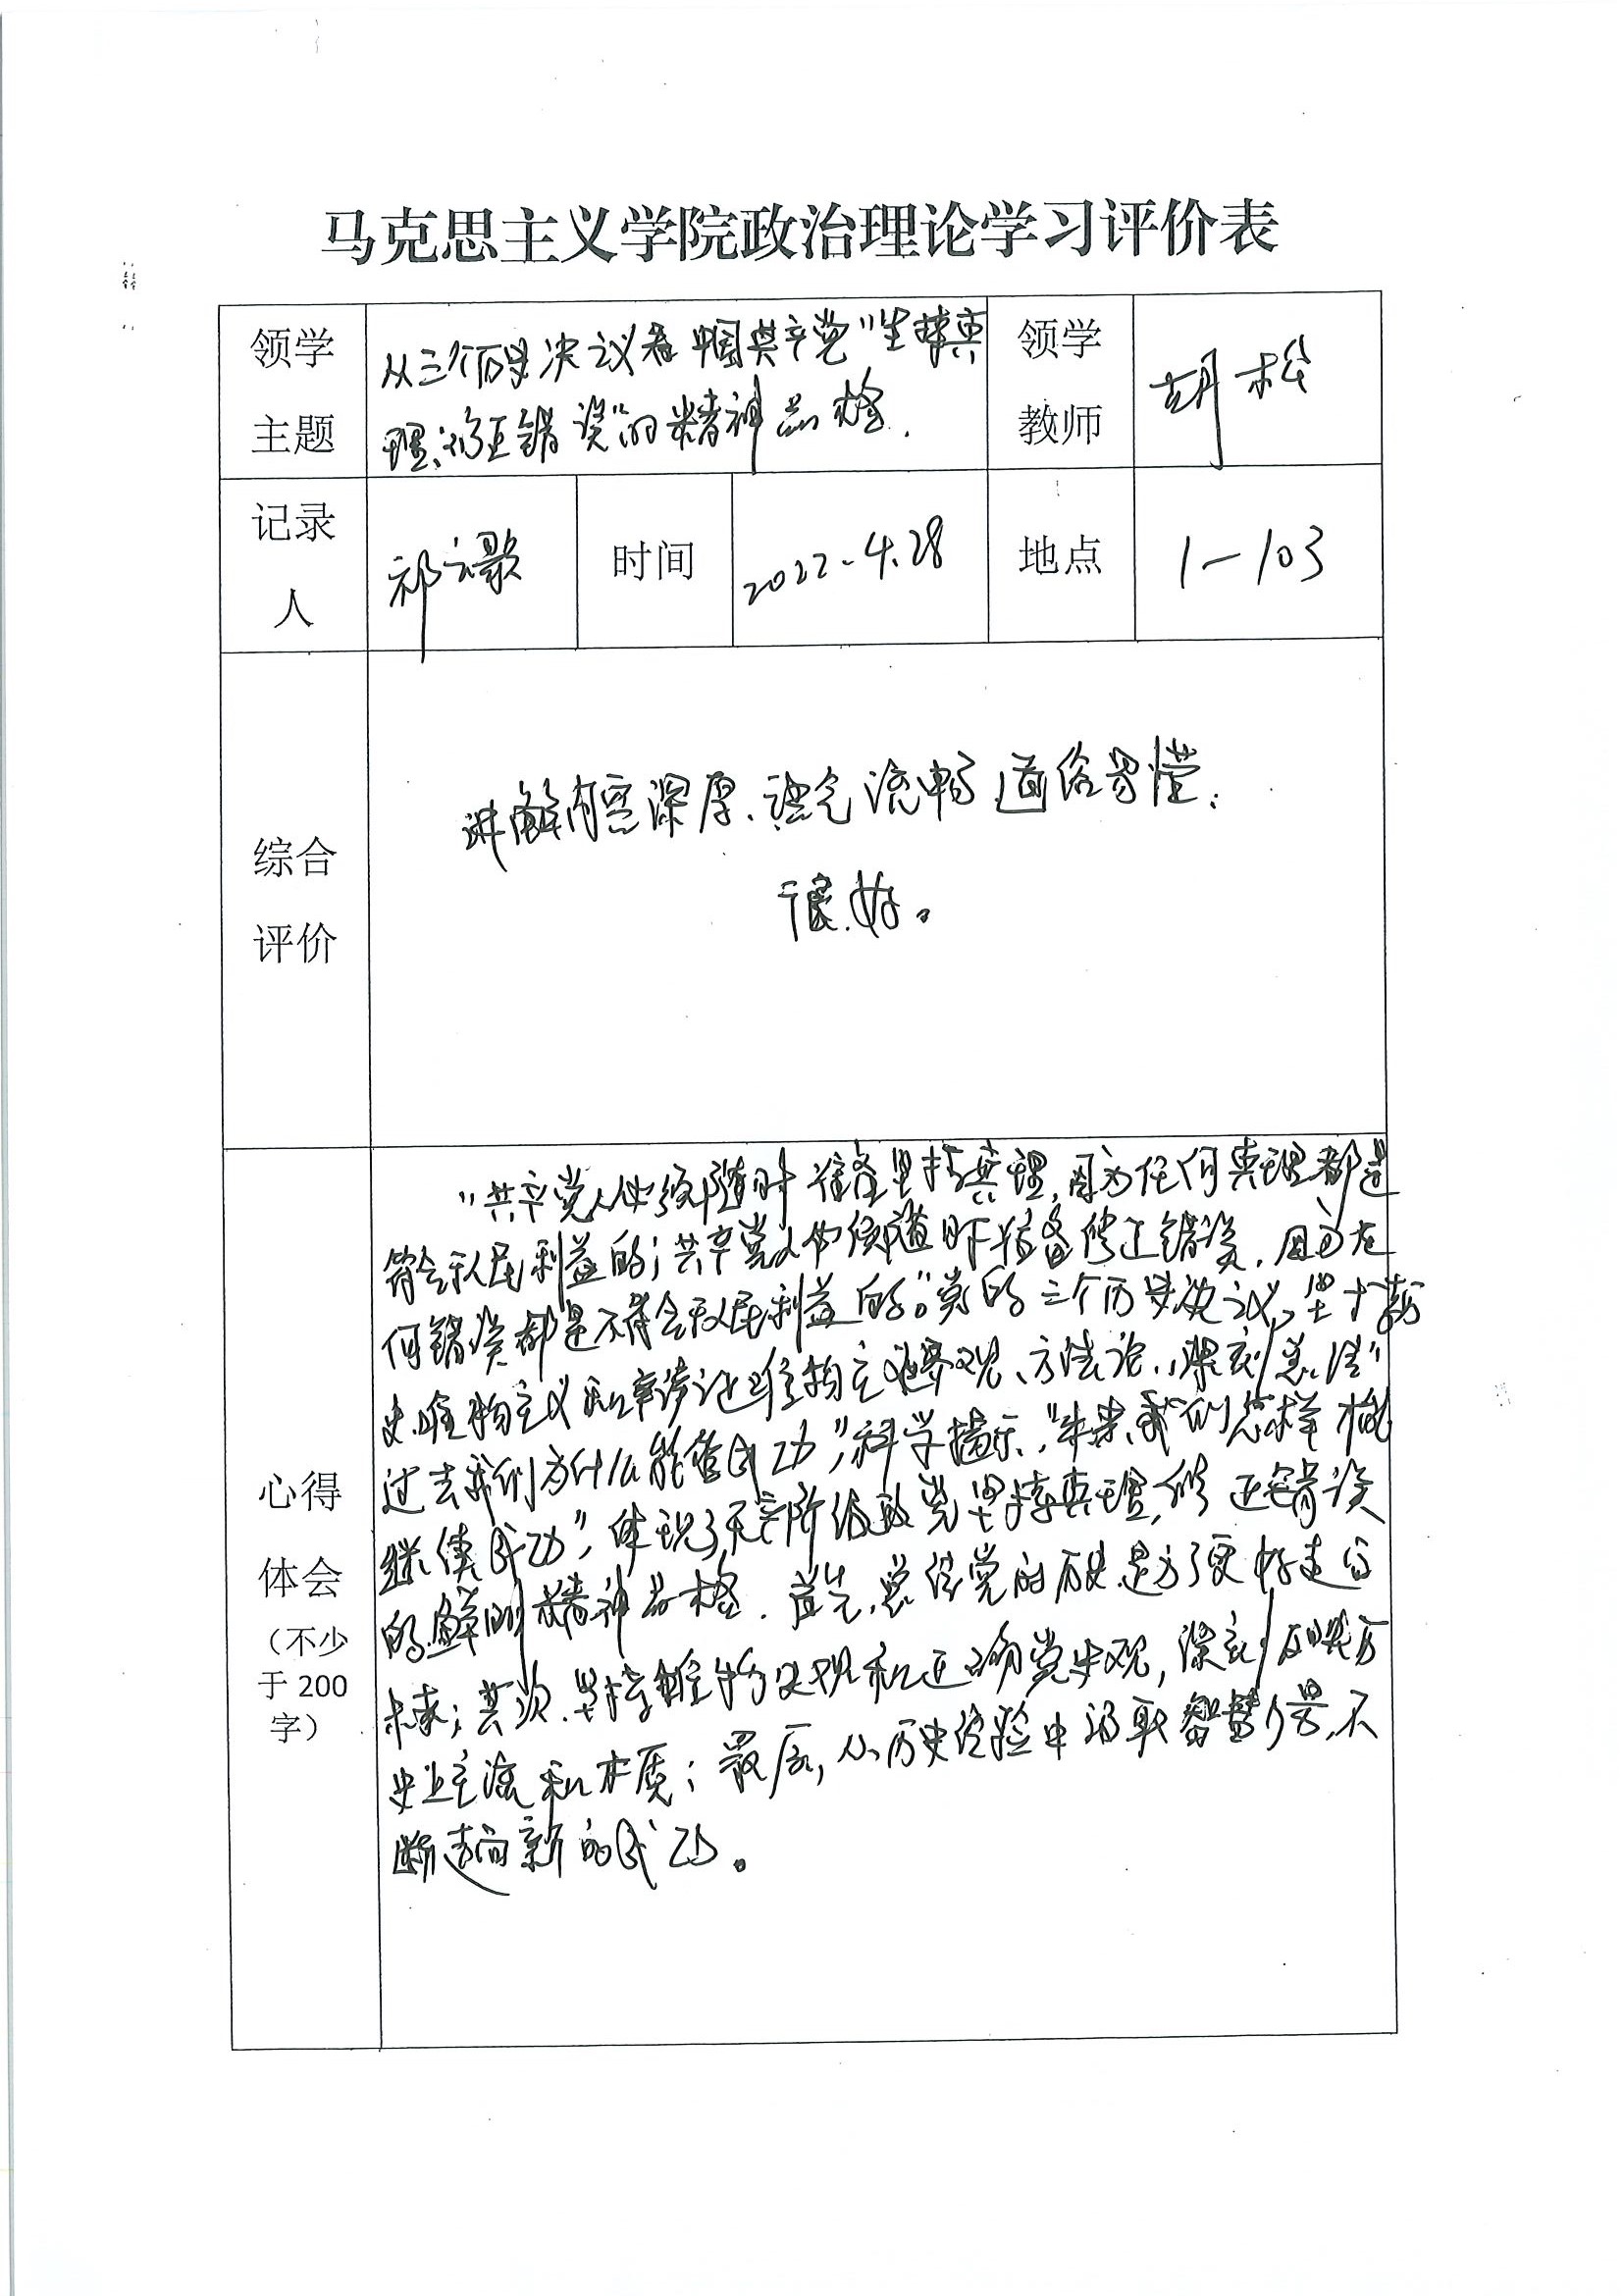 马克思主义学院政治理论学习评价表
领学
主题
从三个历史决议看中国共产党“坚持真
理、修正错误”的精神品格.
领学
教师
胡松
记录
人
祁云歌
时间
2022.4.28
地点
1-103
综合
评价
讲解内容深厚、语气流畅 通俗易懂;
很好。
心得
体会
(不少
于 200
字)
“共产党人必须随时准备坚持真理,因为任何真理都是
符合人民利益的;共产党人必须随时准备修正错误,因为任
何错误都是不符合人民利益的。”党的三个历史决议,坚持历
史唯物主义和辩证唯物主义世界观、方法论,深刻总结“
过去我们为什么能够成功”,科学揭示,“未来我们怎样才能
继续成功”,体现了无产阶级政党坚持真理,修正错误
的鲜明精神品格.首先,总结党的历史是为了更好走向
未来;其次.坚持唯物史观和正确党史观,深刻反映历
史主流和本质;最后,从历史经验中汲取智慧力量,不
断走向新的成功。